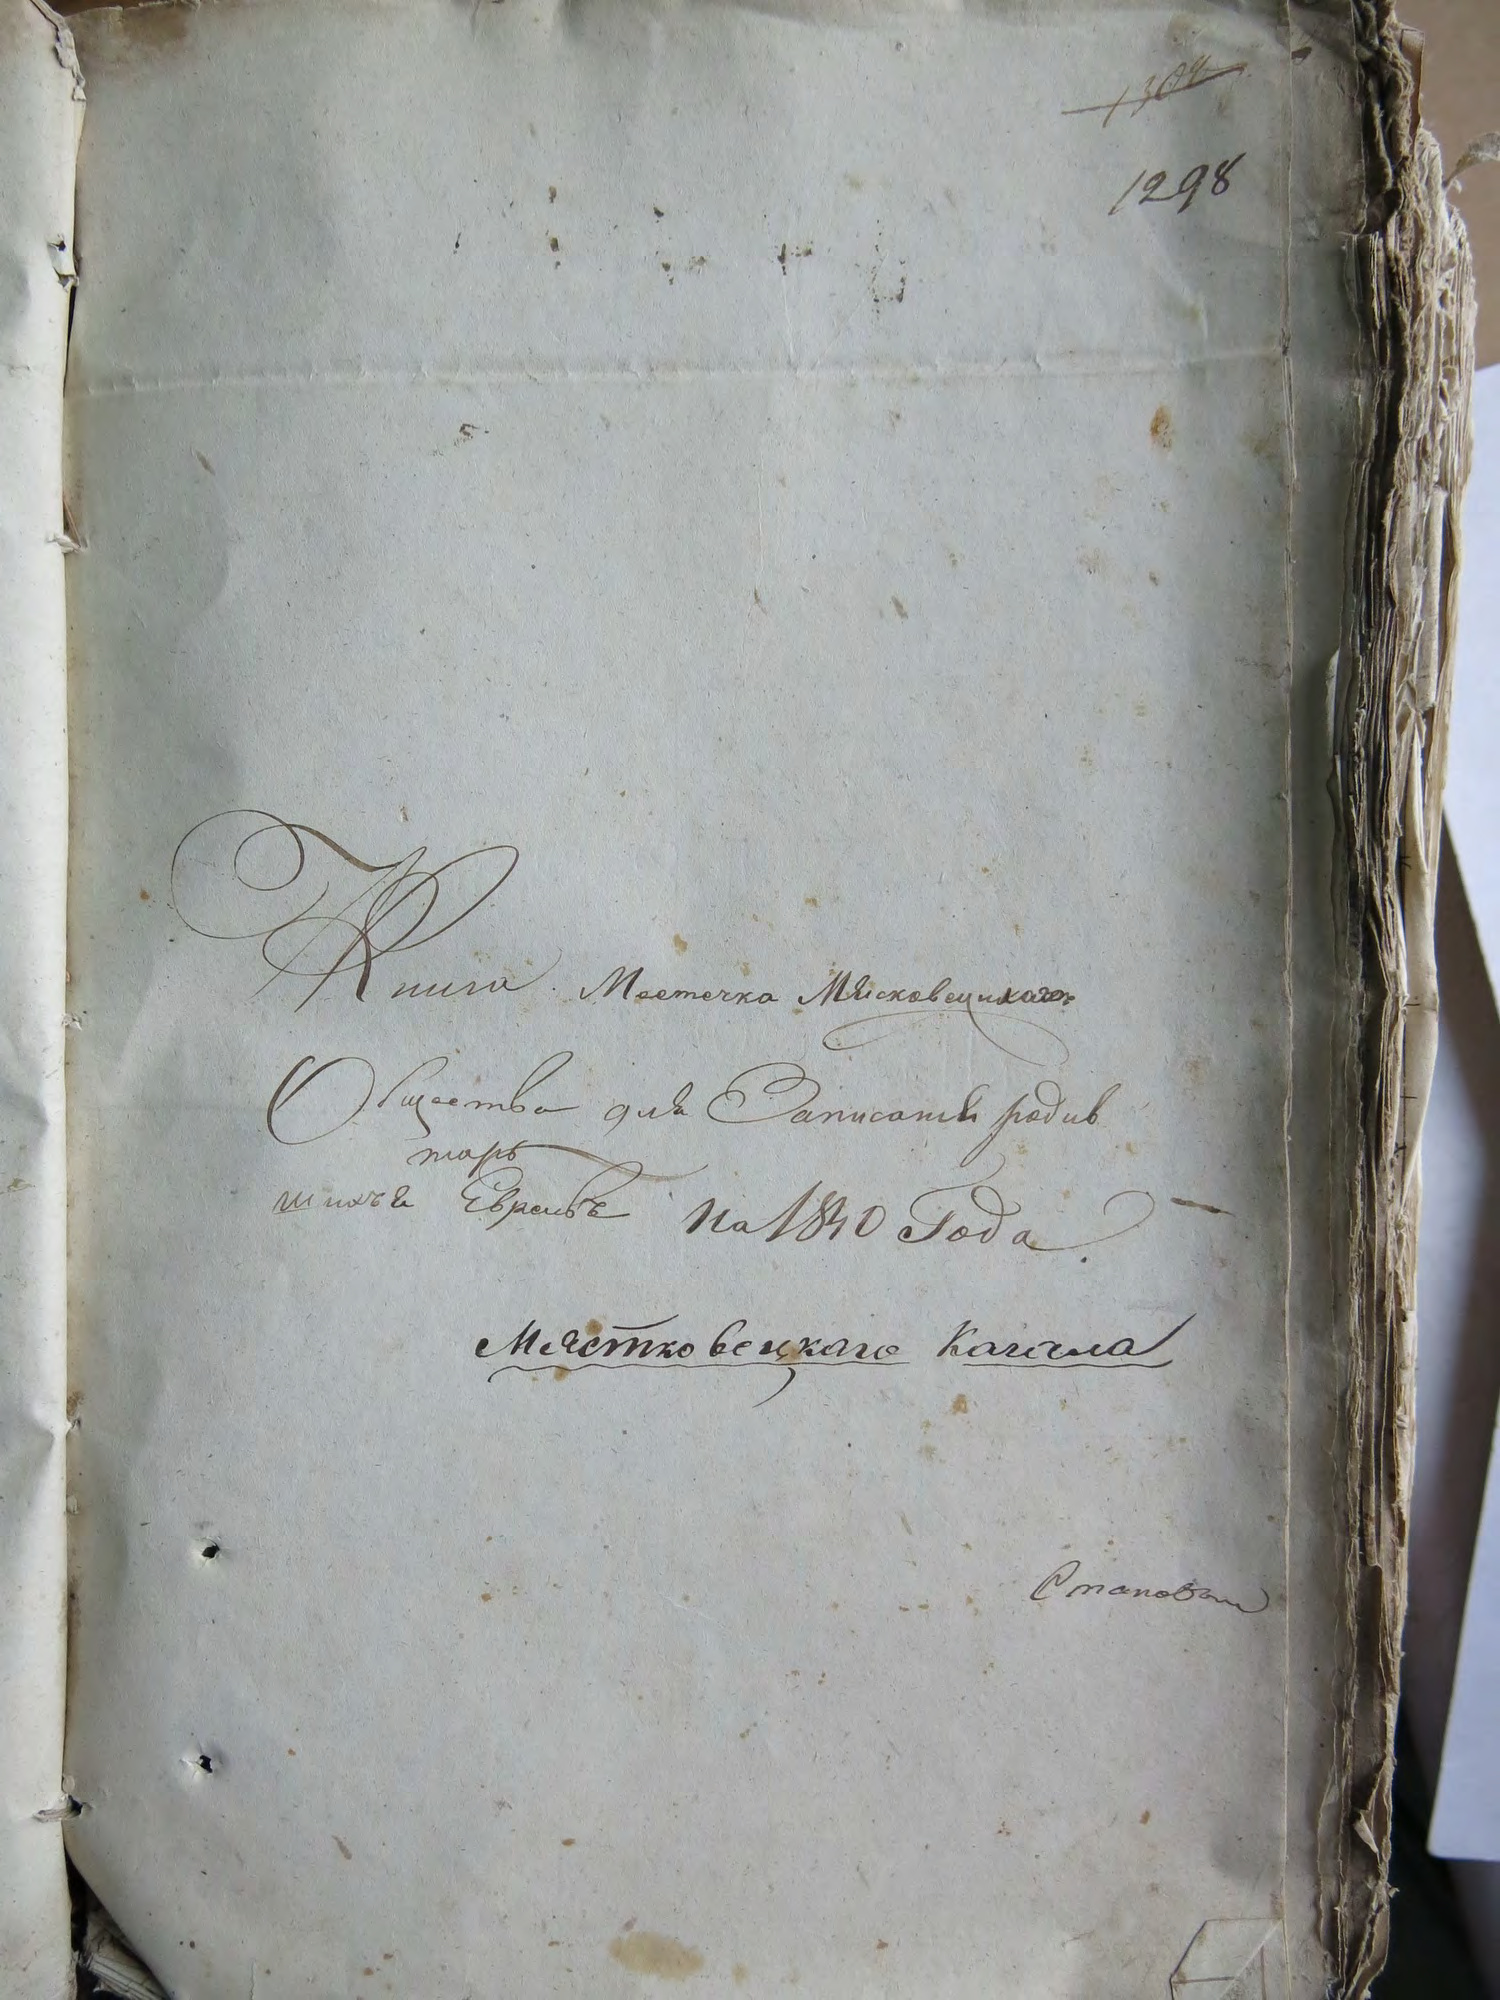 1298
Книга Местечка Мясковецкаго
Общества для Записаты родив
шихъя Евреивъ На 1840 Года.
Мястковецкаго Кагала